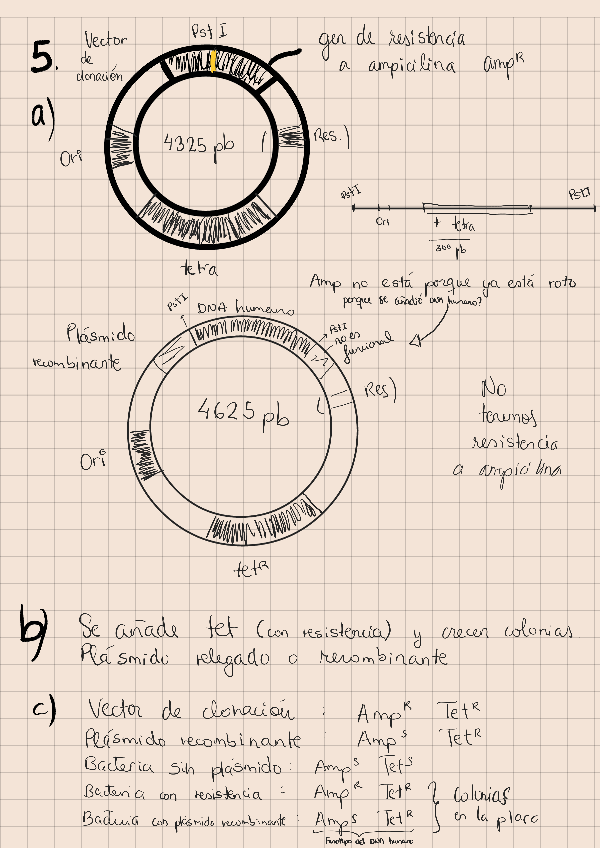 5.
Vector
de
clonación
Pst I
gen de resistencia
a ampicilina Amp^R
a)
4325 pb
Ori
(
Res.)
tetra
PstI
PstI
Ori
+ tetra
300 pb
Amp no está porque ya está roto
porque se añadió DNA humano?
Plásmido
recombinante
PstI
DNA humano
PstI
no es
funcional
4625 pb
(
Res)
Ori
tet^R
No
tenemos
resistencia
a ampicilina
b)
Se añade tet (con resistencia) y crecen colonias
Plásmido relegado o recombinante
c)
Vector de clonación : Amp^R Tet^R
Plásmido recombinante : Amp^S Tet^R
Bacteria sin plásmido : Amp^S Tet^S
Bacteria con resistencia : Amp^R Tet^R
Bacteria con plásmido recombinante : Amp^S Tet^R
colonias
en la placa
Fenotipo del DNA humano